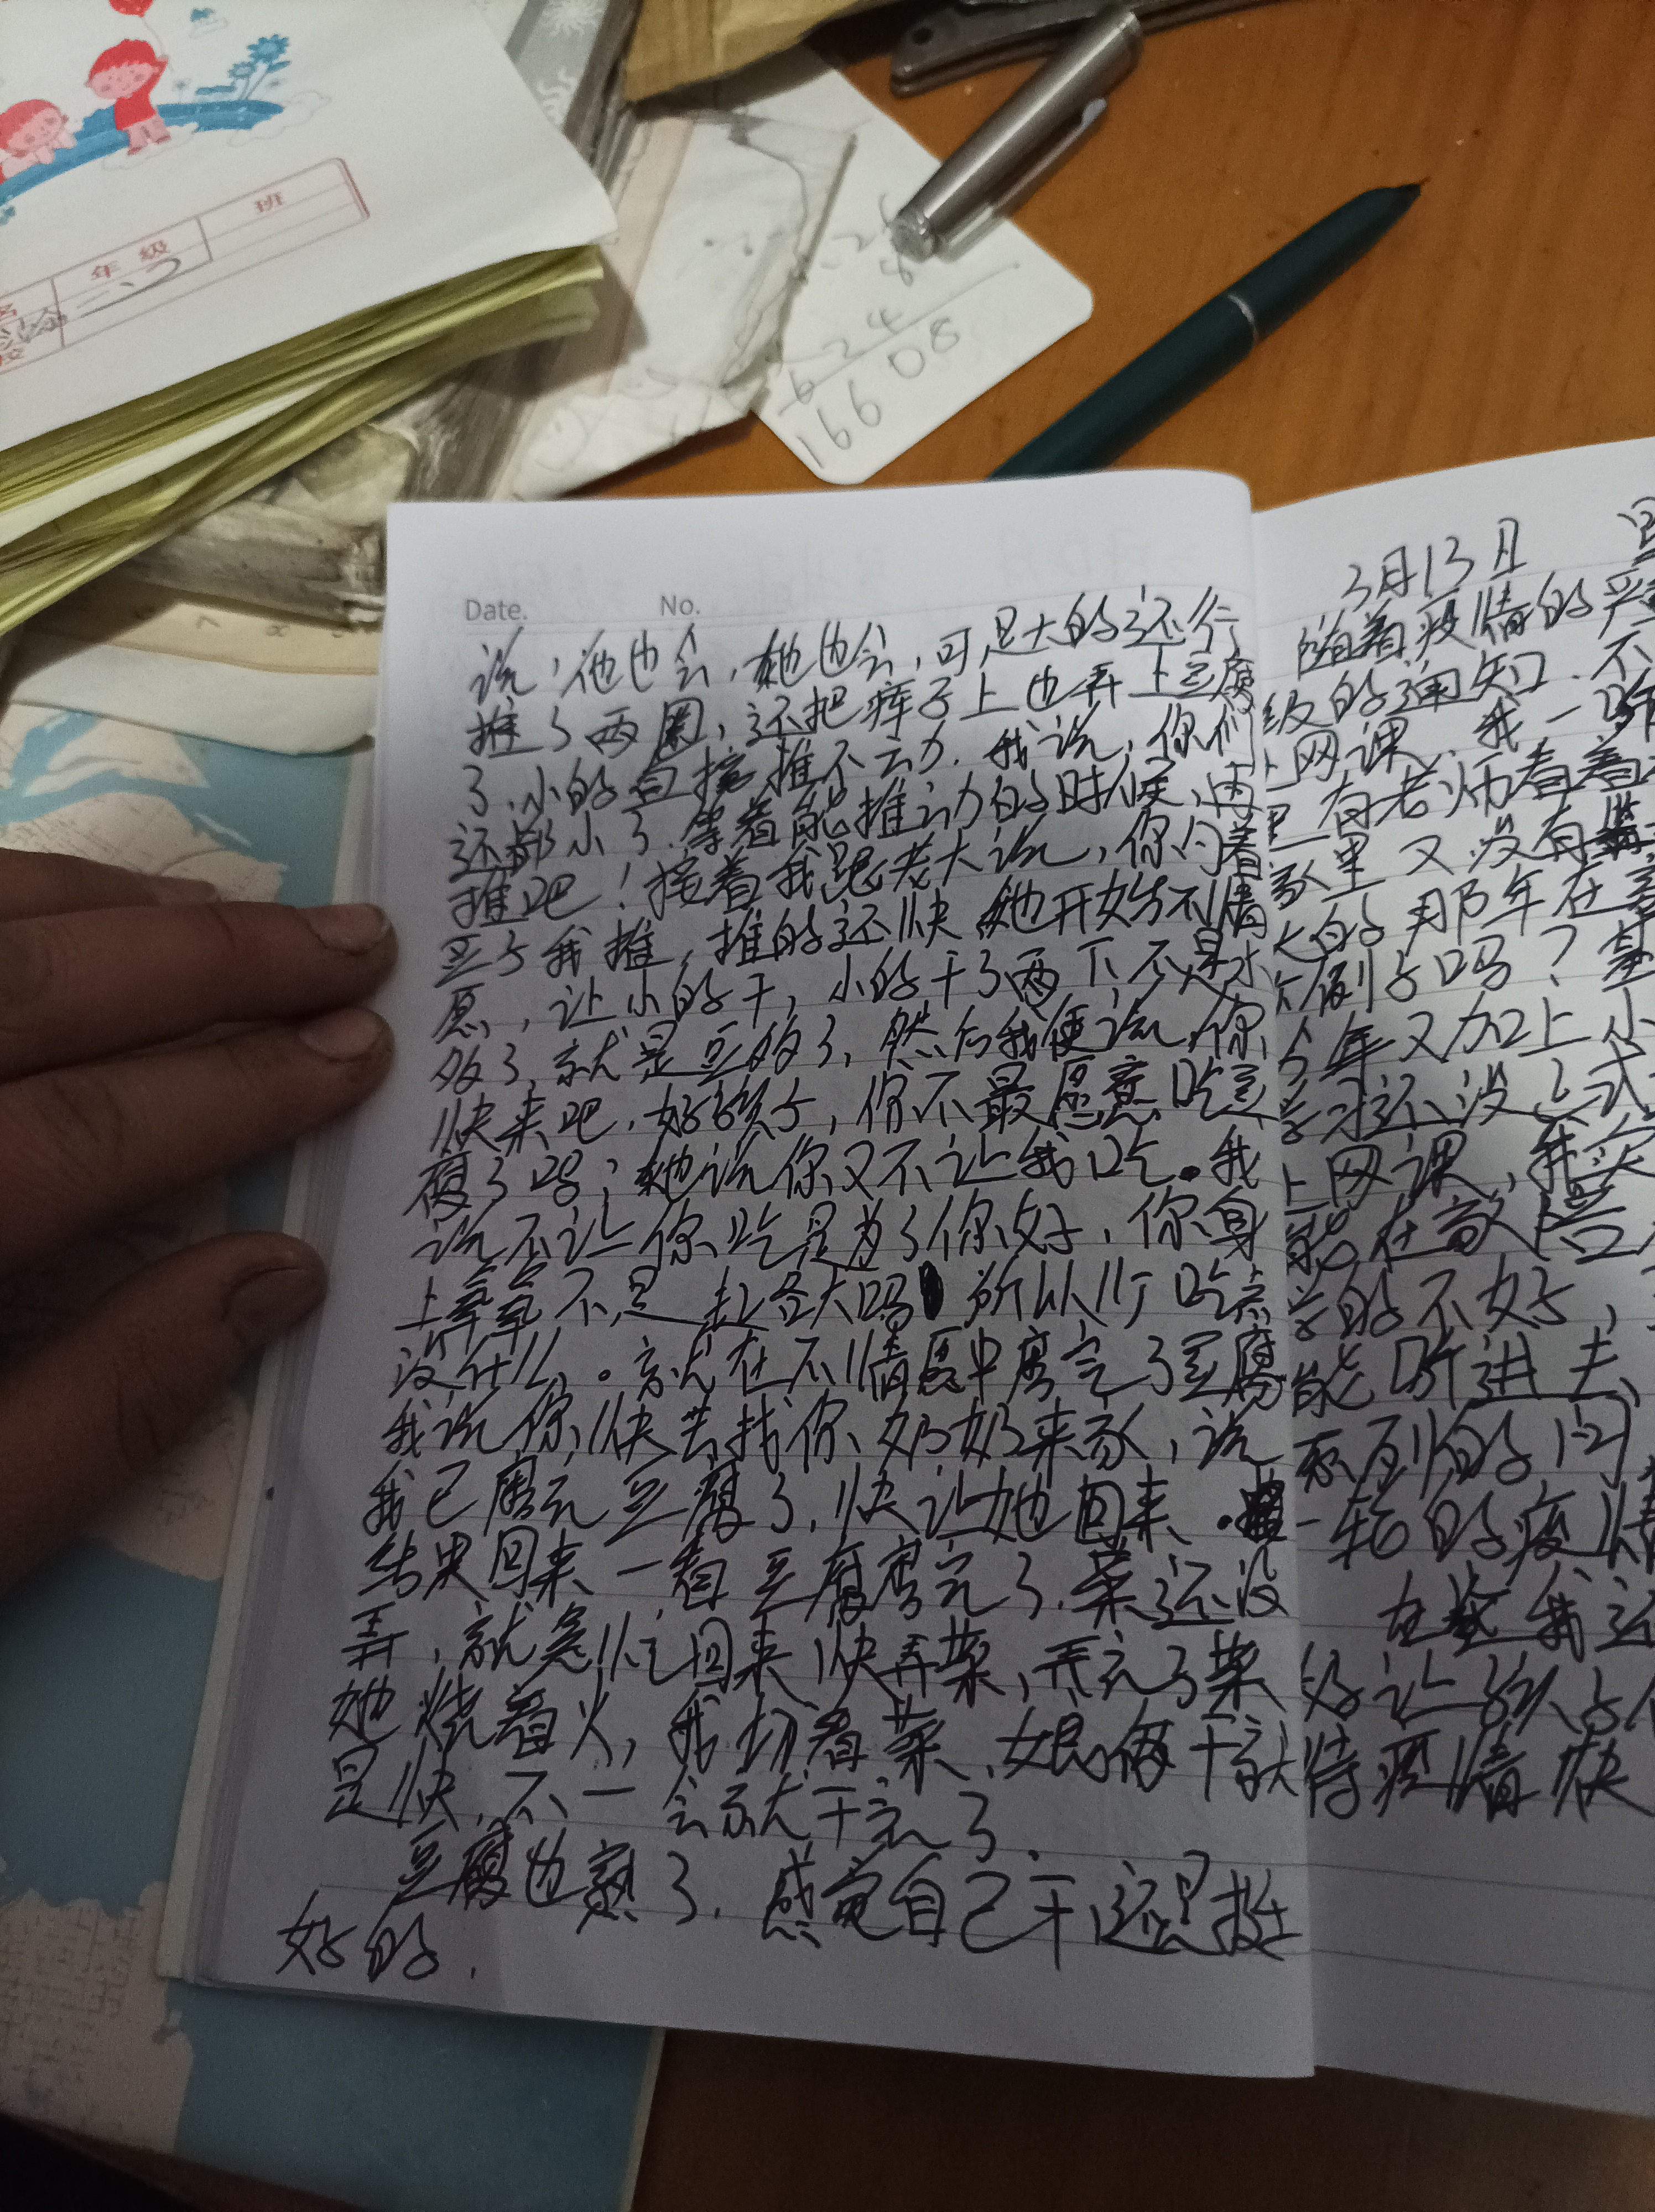 班
年级
二、2
248
16608
Date. No.
说,他也会,她也会,可是大的还行
推了两圈,还把裤子上也弄上豆腐
了,小的直接推不动.我说,你们
还都小了.等着能推动的时候,再
推吧!接着我跟老大说,你舀着
豆子我推,推的还快她开始不情
愿,让小的干,小的干了两下不是水
多了,就是豆多了,然后我便说,你
快来吧,好孩子,你不最愿意吃豆
腐了吗;她说你又不让我吃.我
说不让你吃是为了你好,你身
上不是起各大吗所以少吃点
没什么。就在不情愿中磨完了豆腐
我说你快去找你奶奶来家,说
我已磨完豆腐了,快让她回来.
结果回来一看豆腐磨完了.菜还没
弄,就急忙回来快弄菜,弄完了菜
她烧着火,我切着菜、娘俩干就
是快,不一会就干完了.
豆腐也熟了.感觉自己干还是挺
好的.
3月13日 星
随着疫情的严
级的通知.不
上网课,我一听
里有老师看着
家里又没有
大的那年在家
个例子吗?
今年又加上小
学习还没正式
上网课,我实
能在家陪
学的不好,
能听进去
系列的问
一轮的疫情
在我还
好让孩子们
待疫情快